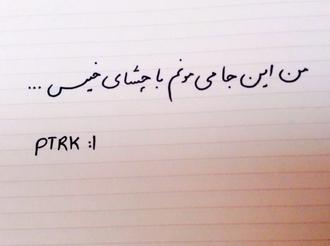 من این جا می مونم با چشای خیس ...
PTRK :|